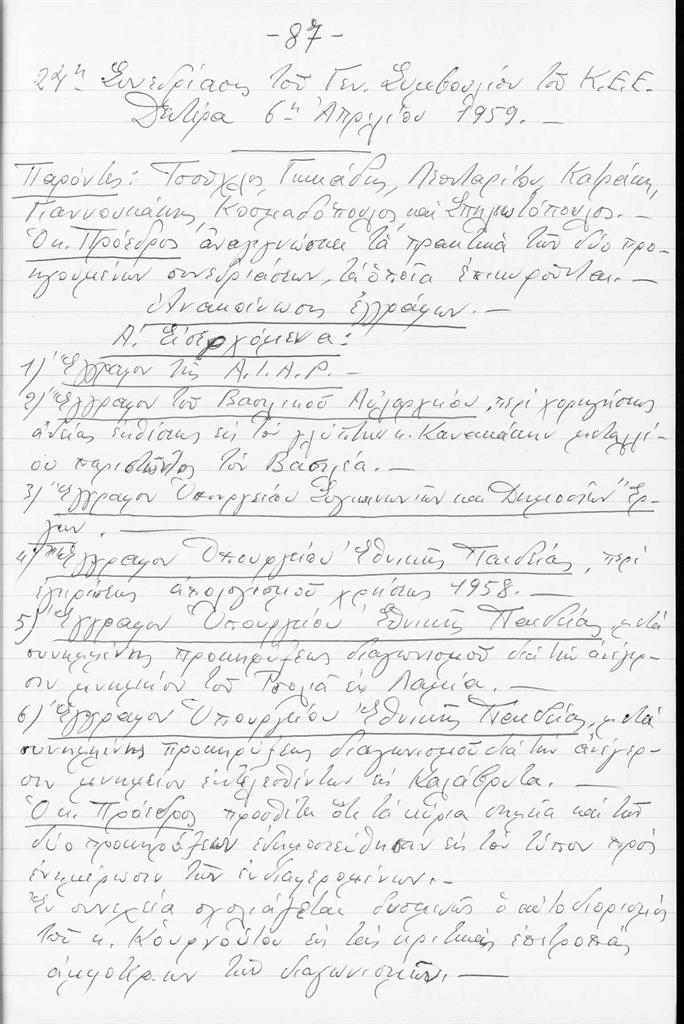 -87-
24η Συνεδρίασις τοῦ Γεν. Συμβουλίου τοῦ Κ.Ε.Ε.
Δευτέρα 6η Ἀπριλίου 1959. —
Παρόντες: Τσοῦχλος, Γκικιάδης, Λεονταρίτου, Κατράκη,
Γιαννουκάκης, Κοσμαδόπουλος, καί Σπηλιωτόπουλος. —
Ὁ κ. Πρόεδρος ἀναγιγνώσκει τά πρακτικά τῶν δύο προ-
ηγουμένων συνεδριάσεων, τά ὁποῖα ἐπικυροῦνται. —
Ἀνακοίνωσις ἐγγράφων. —
Α΄. Εἰσερχόμενα:
1) Ἔγγραφον τῆς A.I.A.P. —
2) Ἔγγραφον τοῦ Βασιλικοῦ Αὐλαρχείου, περί χορηγήσεως
ἀδείας ἐκθέσεως εἰς τόν γλύπτην κ. Κανακάκην μεταλλί-
ου παριστῶντος τόν Βασιλέα. —
3) Ἔγγραφον Ὑπουργείου Συγκοινωνιῶν καί Δημοσίων Ἔρ-
γων. —
4) Ἔγγραφον Ὑπουργείου Ἐθνικῆς Παιδείας, περί
ἐγκρίσεως ἀπολογισμοῦ χρήσεως 1958. —
5) Ἔγγραφον Ὑπουργείου Ἐθνικῆς Παιδείας, μετά
συνημμένης προκηρύξεως διαγωνισμοῦ διά τήν ἀνέγερ-
σιν μνημείου τοῦ Τσολιᾶ ἐν Λαμίᾳ. —
6) Ἔγγραφον Ὑπουργείου Ἐθνικῆς Παιδείας, μετά
συνημμένης προκηρύξεως διαγωνισμοῦ διά τήν ἀνέγερ-
σιν μνημείου ἐκτελεσθέντων εἰς Καλάβρυτα. —
Ὁ κ. Πρόεδρος προσθέτει ὅτι τά κύρια σημεῖα καί τῶν
δύο προκηρύξεων ἐδημοσιεύθησαν εἰς τόν τύπον πρός
ἐνημέρωσιν τῶν ἐνδιαφερομένων. —
Ἐν συνεχείᾳ σχολιάζεται δυσμενῶς ὁ αὐτοδιορισμός
τοῦ κ. Κουρνούτου εἰς τάς κριτικάς ἐπιτροπάς
ἀμφοτέρων τῶν διαγωνισμῶν. —